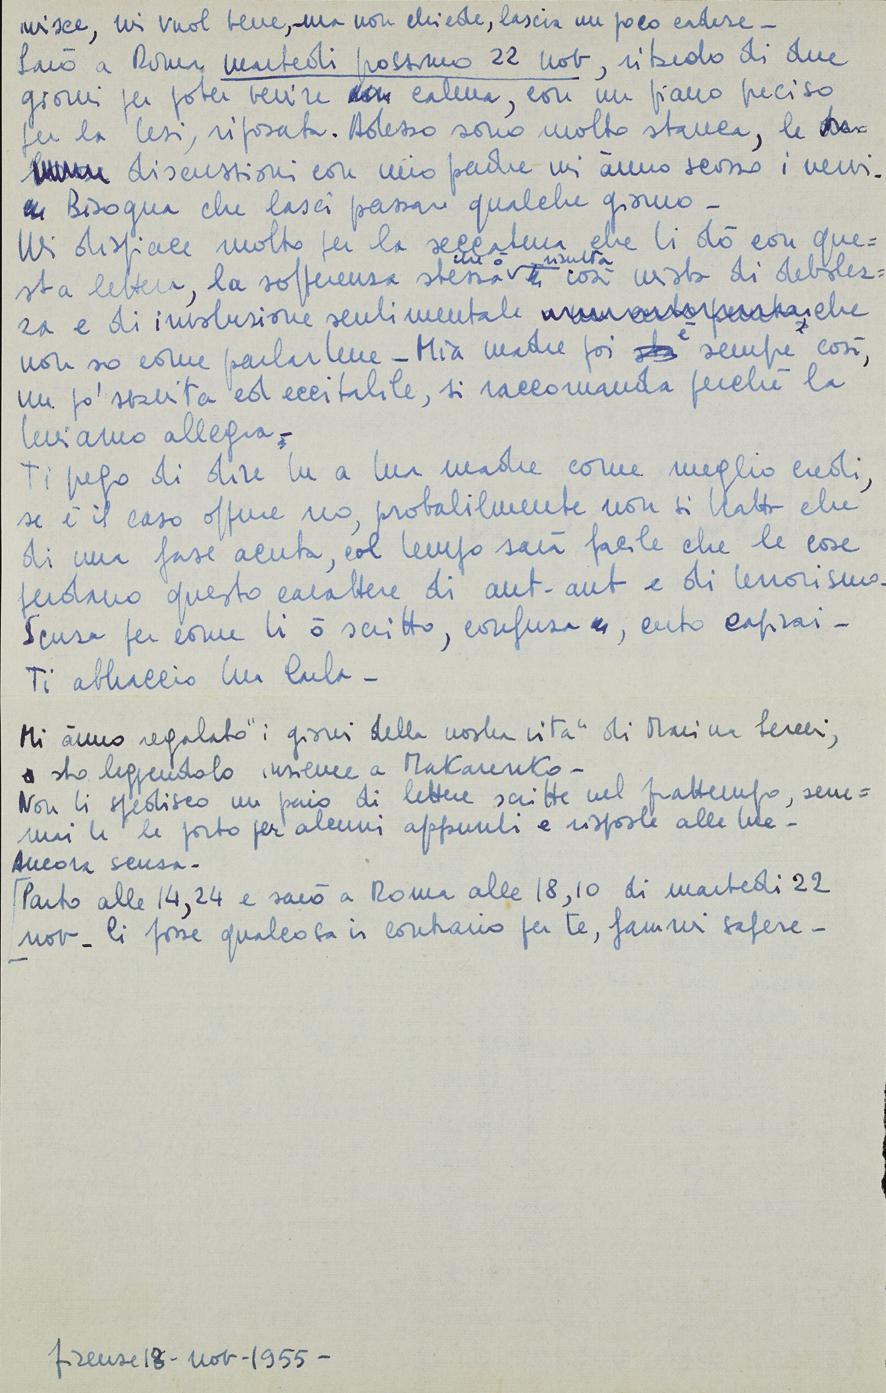 nisce, mi vuol bene, ma non chiede, lascia un poco cadere –
Sarò a Roma martedì prossimo 22 nov, ritardo di due
giorni per poter venire calma, con un piano preciso
per la tesi, riposata. Adesso sono molto stanca, le
discussioni con mio padre mi ànno scosso i nervi.
Bisogna che lasci passare qualche giorno –
Mi dispiace molto per la seccatura che ti dò con que=
sta lettera, la sofferenza stessa che ò risulta così mista di debolez=
za e di involuzione sentimentale che
non so come parlartene – Mia madre poi è sempre così,
un po' svanita ed eccitabile, si raccomanda perché la
teniamo allegra –
Ti prego di dire tu a tua madre come meglio credi,
se è il caso oppure no, probabilmente non si tratta che
di una fase acuta, col tempo sarà facile che le cose
perdano questo carattere di aut-aut e di terrorismo –
Scusa per come ti ò scritto, confusa, certo capirai –
Ti abbraccio tua Carla –
Mi ànno regalato "i giorni della nostra vita" di Marina Sereni,
sto leggendolo insieme a Makarenko –
Non ti spedisco un paio di lettere scritte nel frattempo, sem=
mai te le porto per alcuni appunti e risposte alle tue –
Ancora scusa –
Parto alle 14,24 e sarò a Roma alle 18,10 di martedì 22
nov – Ci fosse qualcosa in contrario per te, fammi sapere –
firenze 18 - nov - 1955 –